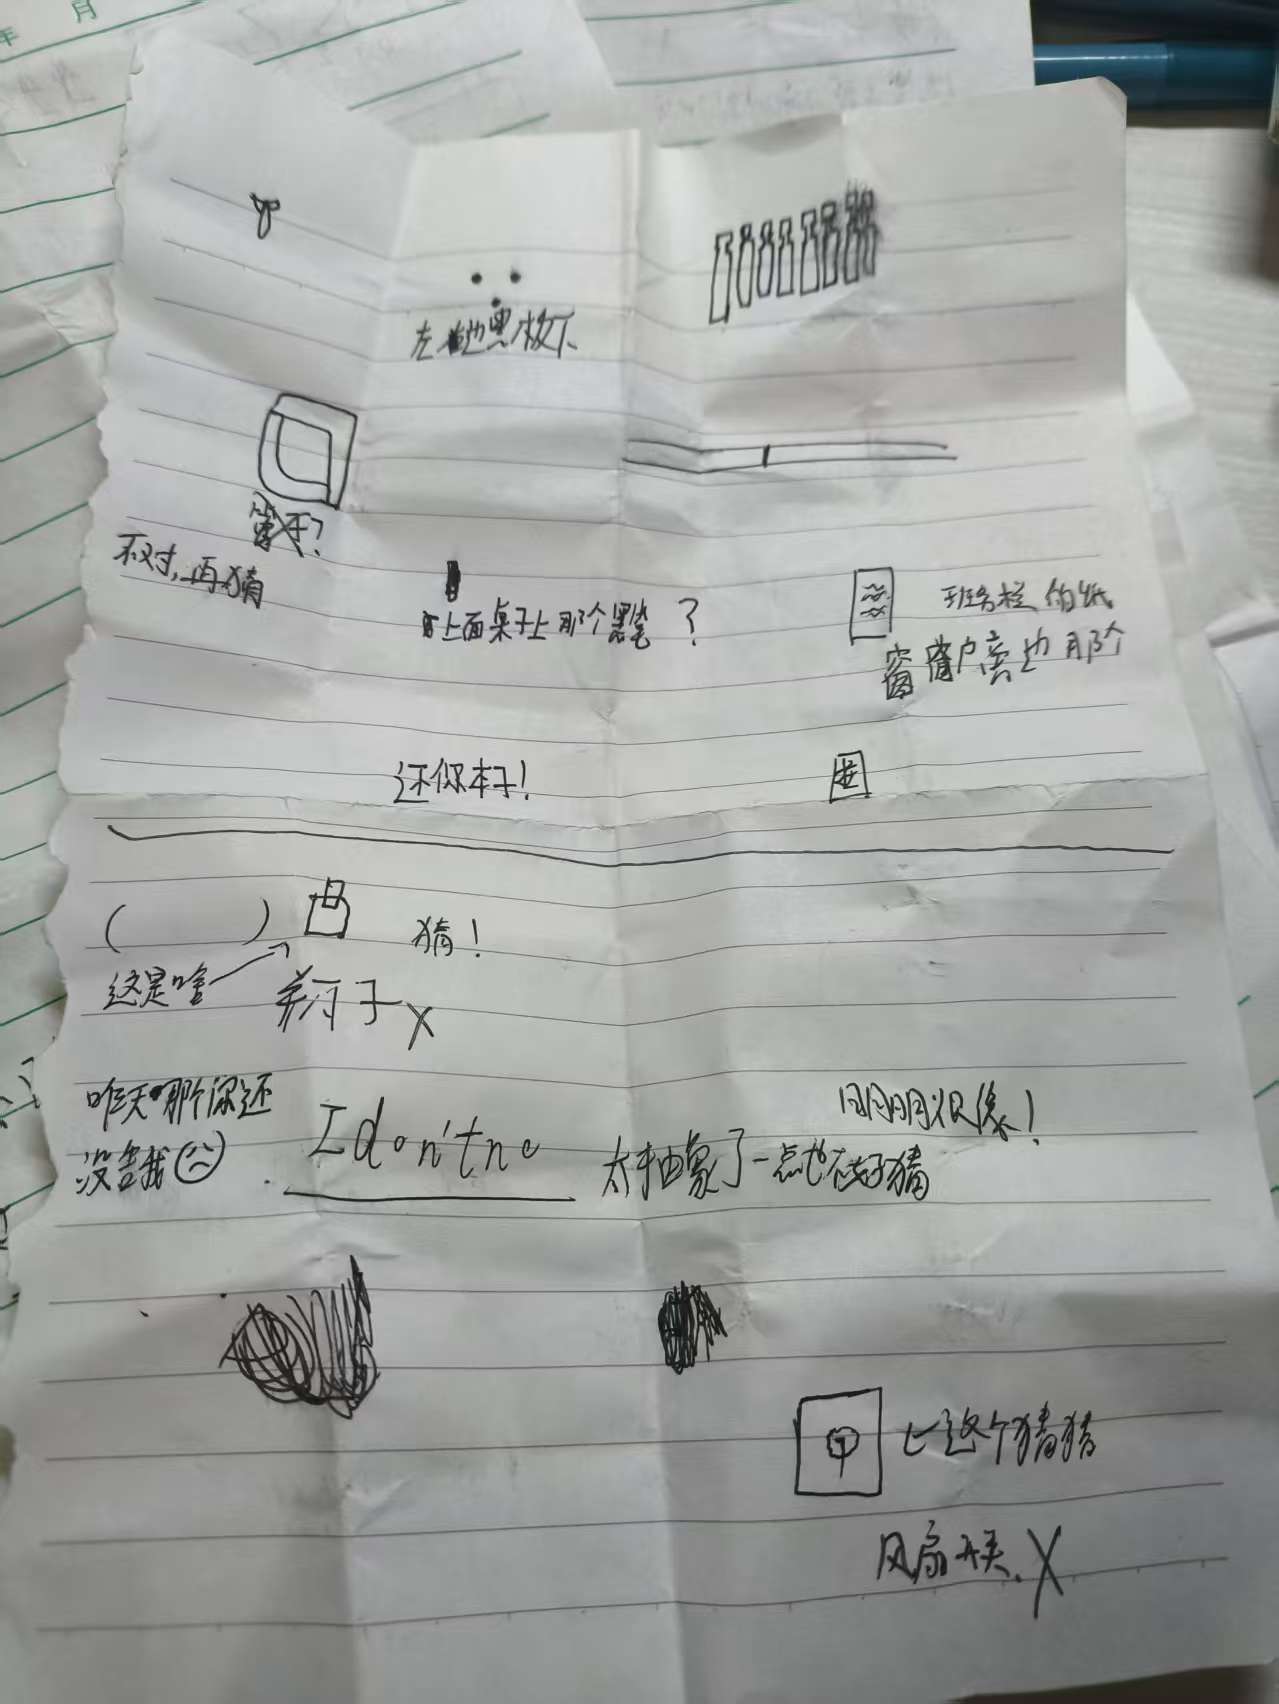 年 月
左边黑板下
窗子?
不对,再猜
上面桌子上那个黑笔?
班务栏的纸
窗户旁边那个
还你本子!
( ) 猜!
这是啥
养习子X
昨天那个你还
没告我
I don't no
明明很像!
太抽象了一点也不好猜
这个猜猜
风扇开关.X